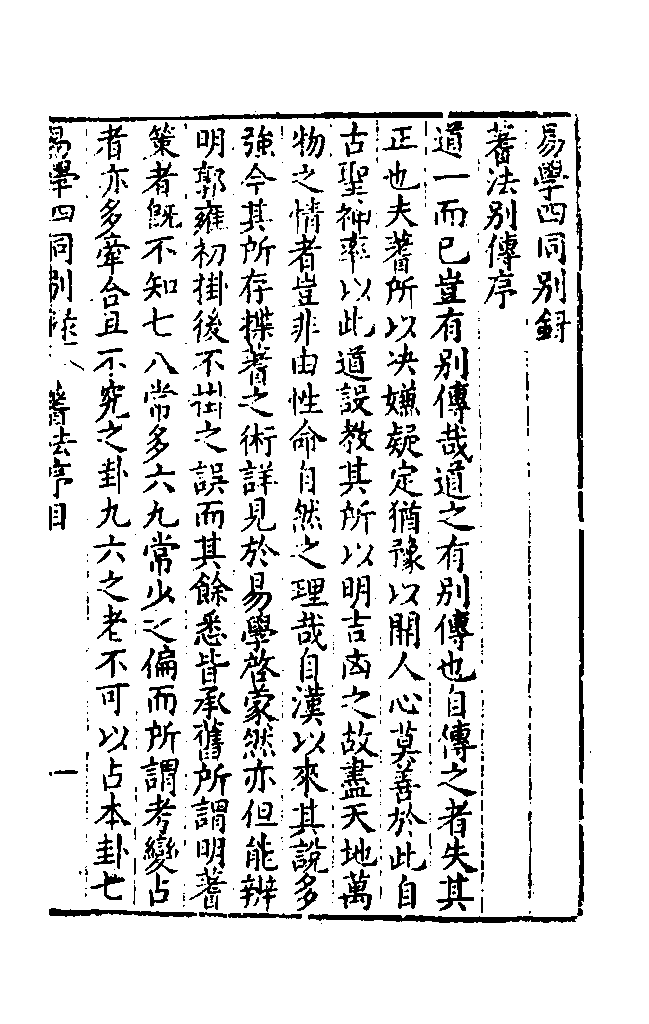 易學四同別錄
蓍法別傳序
道一而已豈有別傳哉道之有別傳也自傳之者失其
正也夫蓍所以决嫌疑定猶豫以開人心莫善於此自
古聖神率以此道設教其所以明吉凶之故盡天地萬
物之情者豈非由性命自然之理哉自漢以來其說多
強今其所存揲蓍之術詳見於易學啓蒙然亦但能辨
明郭雍初掛後不掛之誤而其餘悉皆承舊所謂明蓍
策者旣不知七八常多六九常少之偏而所謂考變占
者亦多牽合且不究之卦九六之老不可以占本卦七
易學四同別錄 蓍法序目 一